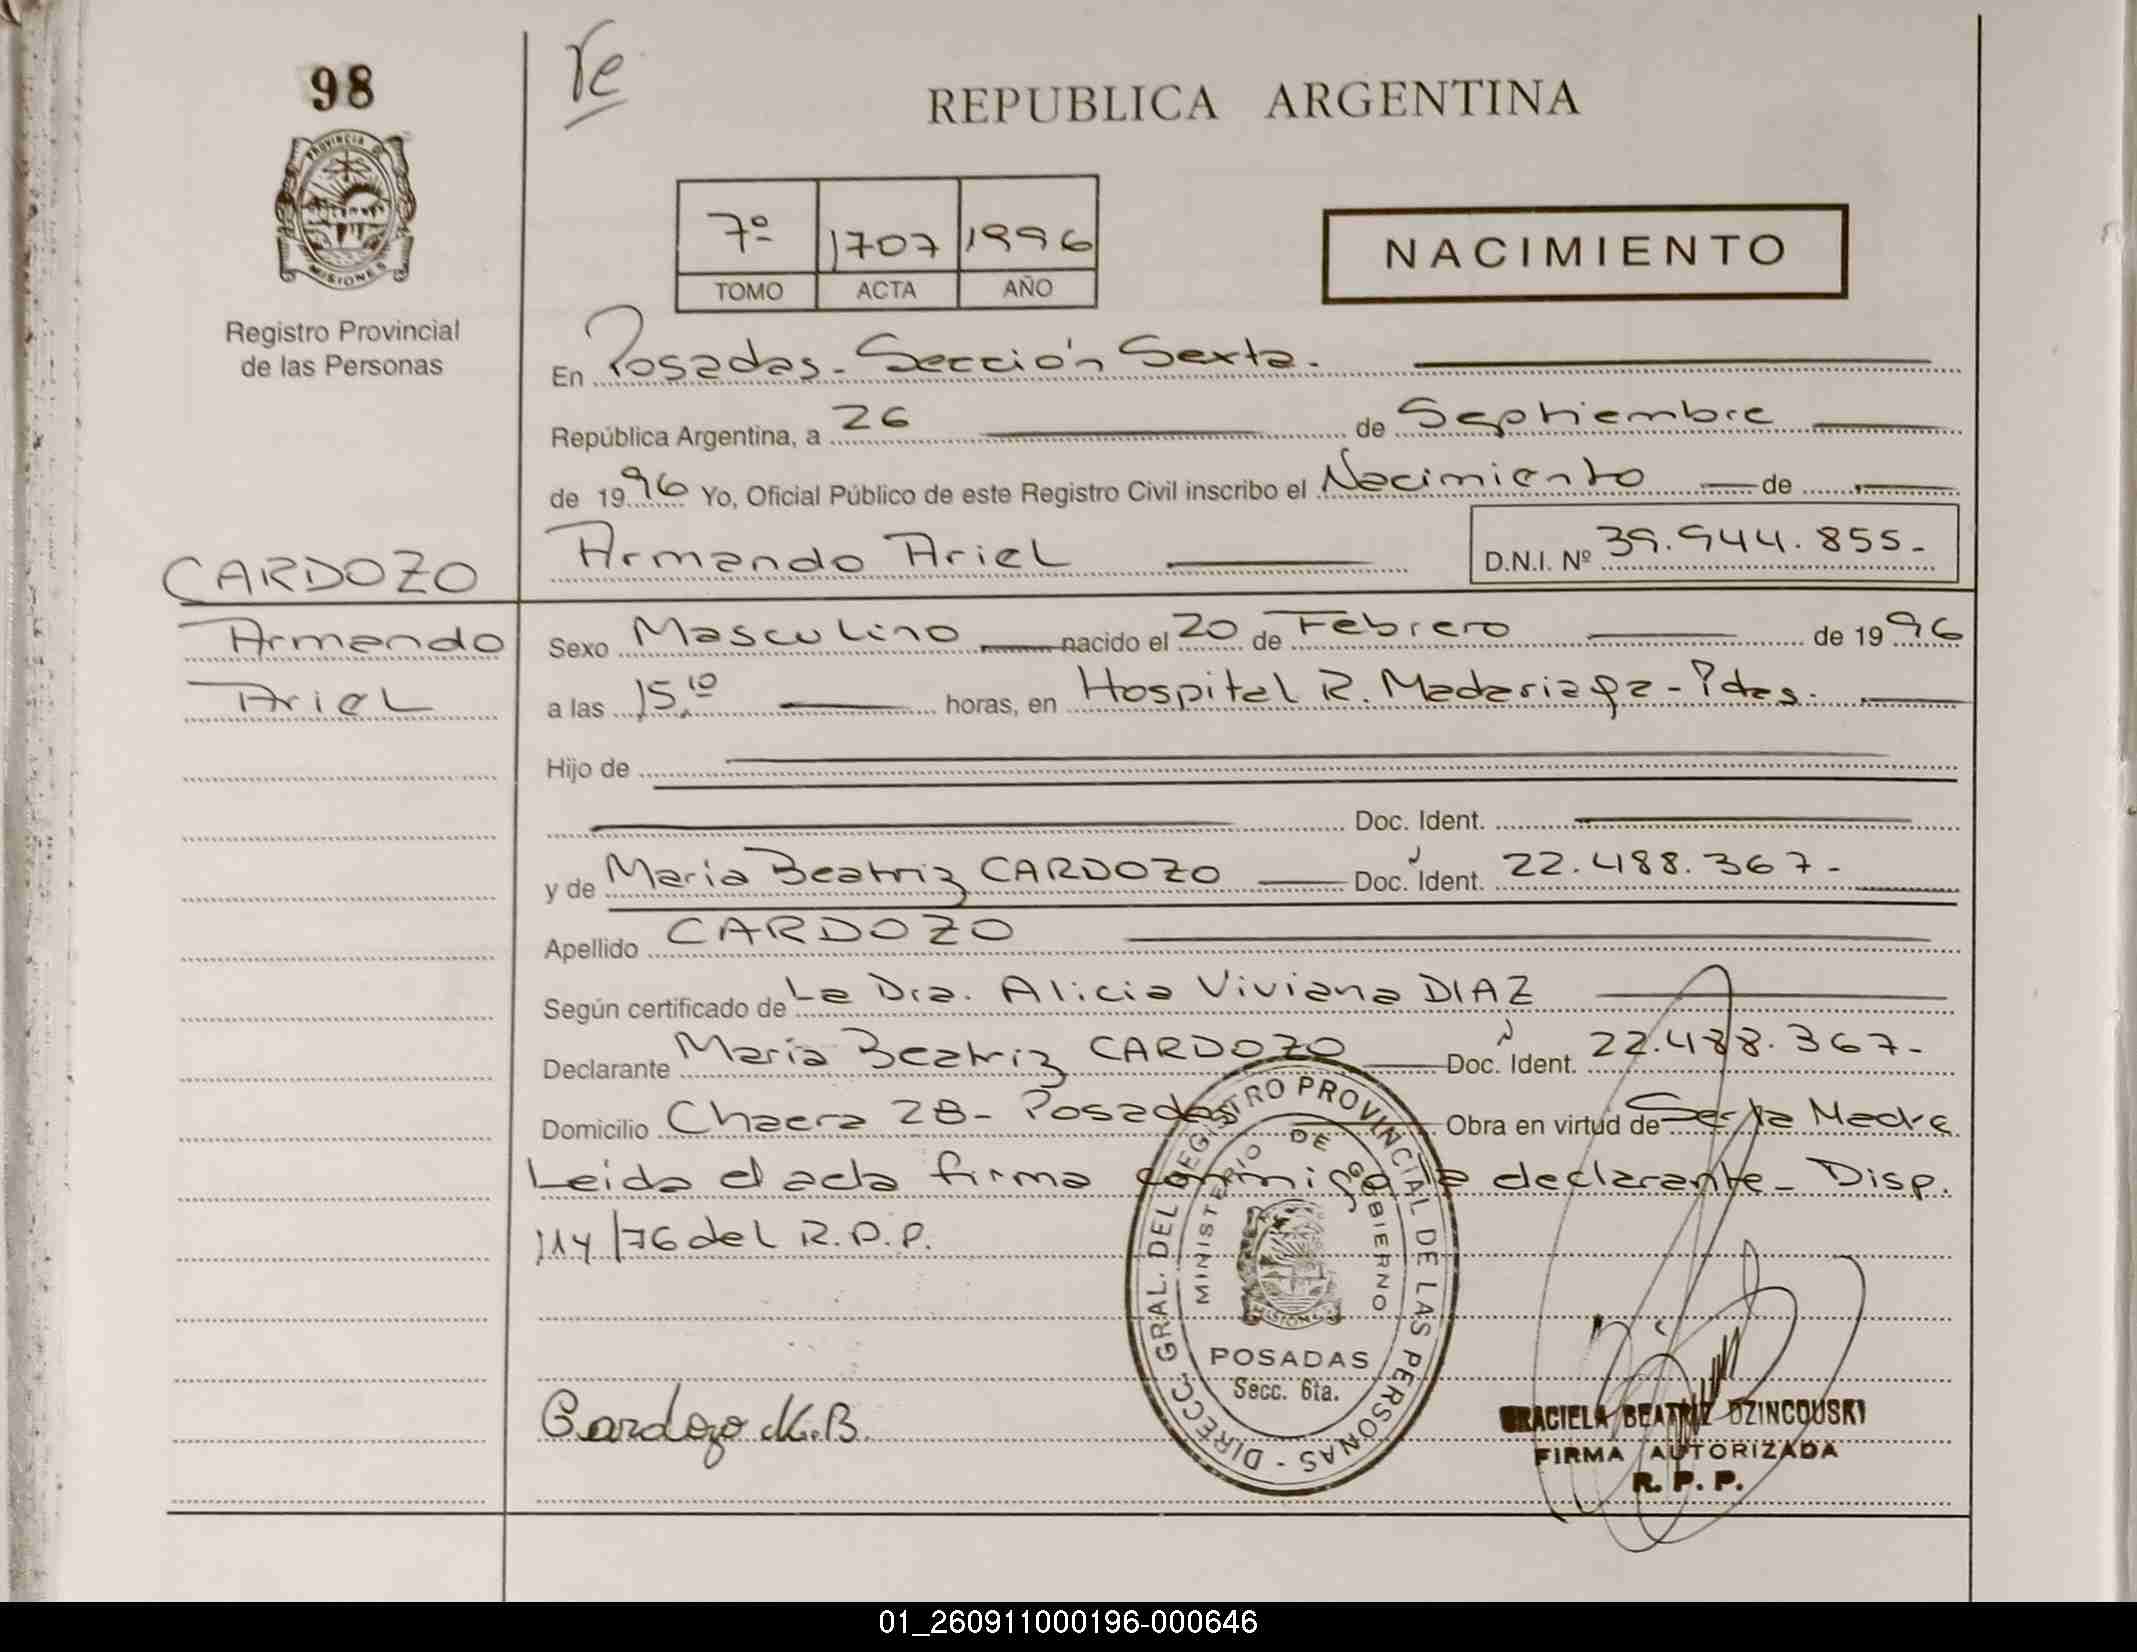 98
Te
REPUBLICA ARGENTINA
PROVINCIA DE
MISIONES
Registro Provincial
de las Personas
7º 1707 1996
TOMO ACTA AÑO
NACIMIENTO
En Posadas - Sección Sexta.
República Argentina, a 26 de Septiembre
de 1996 Yo, Oficial Público de este Registro Civil inscribo el Nacimiento de
Armando Ariel D.N.I. Nº 39.944.855-
CARDOZO
Armando
Ariel
Sexo Masculino nacido el 20 de Febrero de 1996
a las 15,10 horas, en Hospital R. Madariaga - Pdas.
Hijo de
Doc. Ident.
y de Maria Beatriz CARDOZO Doc. Ident. 22.488.367-
Apellido CARDOZO
Según certificado de La Dra. Alicia Viviana DIAZ
Declarante Maria Beatriz CARDOZO Doc. Ident. 22.488.367-
Domicilio Chacra 28 - Posadas Obra en virtud de Ser la Madre
Leida el acta firma conmigo la declarante - Disp.
114/76 del R.P.P.
DIRECC. GRAL. DEL REGISTRO PROVINCIAL DE LAS PERSONAS -
MINISTERIO DE GOBIERNO
MISIONES
POSADAS
Secc. 6ta.
Cardozo M.B.
GRACIELA BEATRIZ DZINCOUSKI
FIRMA AUTORIZADA
R. P. P.
01_260911000196-000646